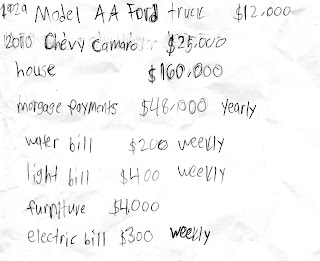 1929 Model AA Ford truck $12,000
2010 Chevy Camaro $25,000
house $160,000
morgage payments $48,000 yearly
water bill $200 weekly
light bill $400 weekly
furniture $4,000
electric bill $300 weekly